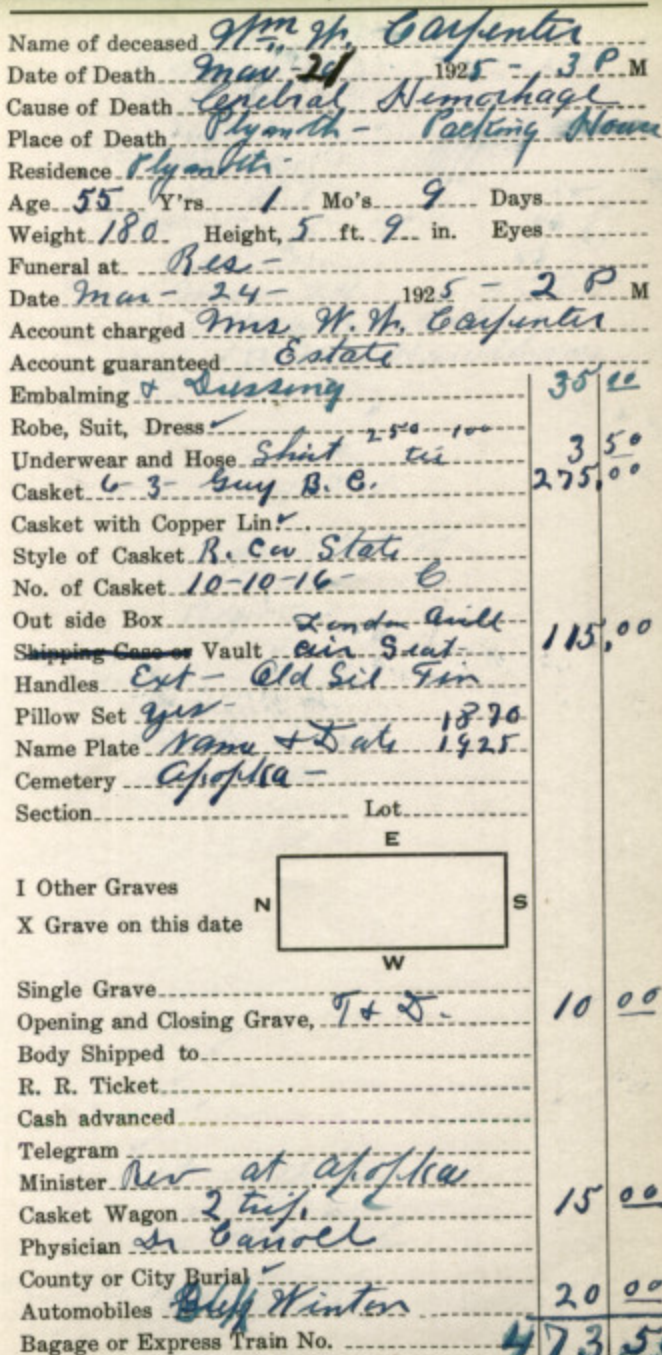 Name of deceased Wm. W. Carpenter
Date of Death Mar 21 1925 - 3 P M
Cause of Death Cerebral Hemorhage
Place of Death Plymoth - Packing House
Residence Plymoth -
Age 55 Y'rs 1 Mo's 9 Days
Weight 180 Height, 5 ft. 9 in. Eyes
Funeral at Res -
Date Mar - 24 - 1925 - 2 P M
Account charged Mrs W. W. Carpenter
Account guaranteed Estate
Embalming & Dressing 35 00
Robe, Suit, Dress ✓
Underwear and Hose Shirt 2 50 tie 1 00 3 50
Casket 6 - 3 - Guy B. C. 275.00
Casket with Copper Lin. ✓
Style of Casket R. Cor State
No. of Casket 10-10-16- C
Out side Box
Shipping Case or Vault air Seal 115.00
Handles Ext - Old Sil Fin
Pillow Set yes - 1870
Name Plate Name & Date 1925
Cemetery Apopka -
Section Lot
E
I Other Graves
N S
X Grave on this date
W
Single Grave
Opening and Closing Grave, T & D. 10 00
Body Shipped to
R. R. Ticket
Cash advanced
Telegram
Minister Rev at Apopka
Casket Wagon 2 trip. 15 00
Physician Dr Carroll
County or City Burial ✓
Automobiles Winton 20 00
Bagage or Express Train No. 473 5